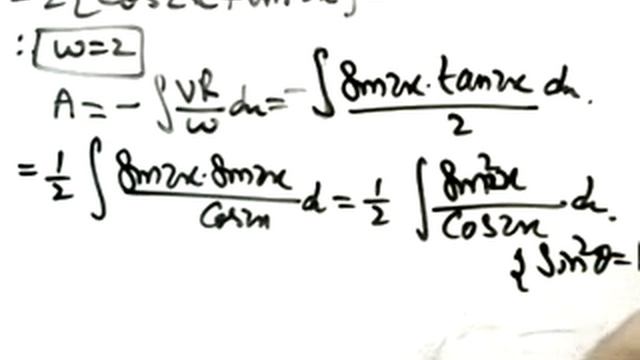 : w=2
A = - ∫ VR/w dx = - ∫ sin2x. tan2x/2 dx.
= 1/2 ∫ sin2x. sin2x/Cos2x d = 1/2 ∫ sin²2x/Cos2x dx.
{ sin²θ = 1